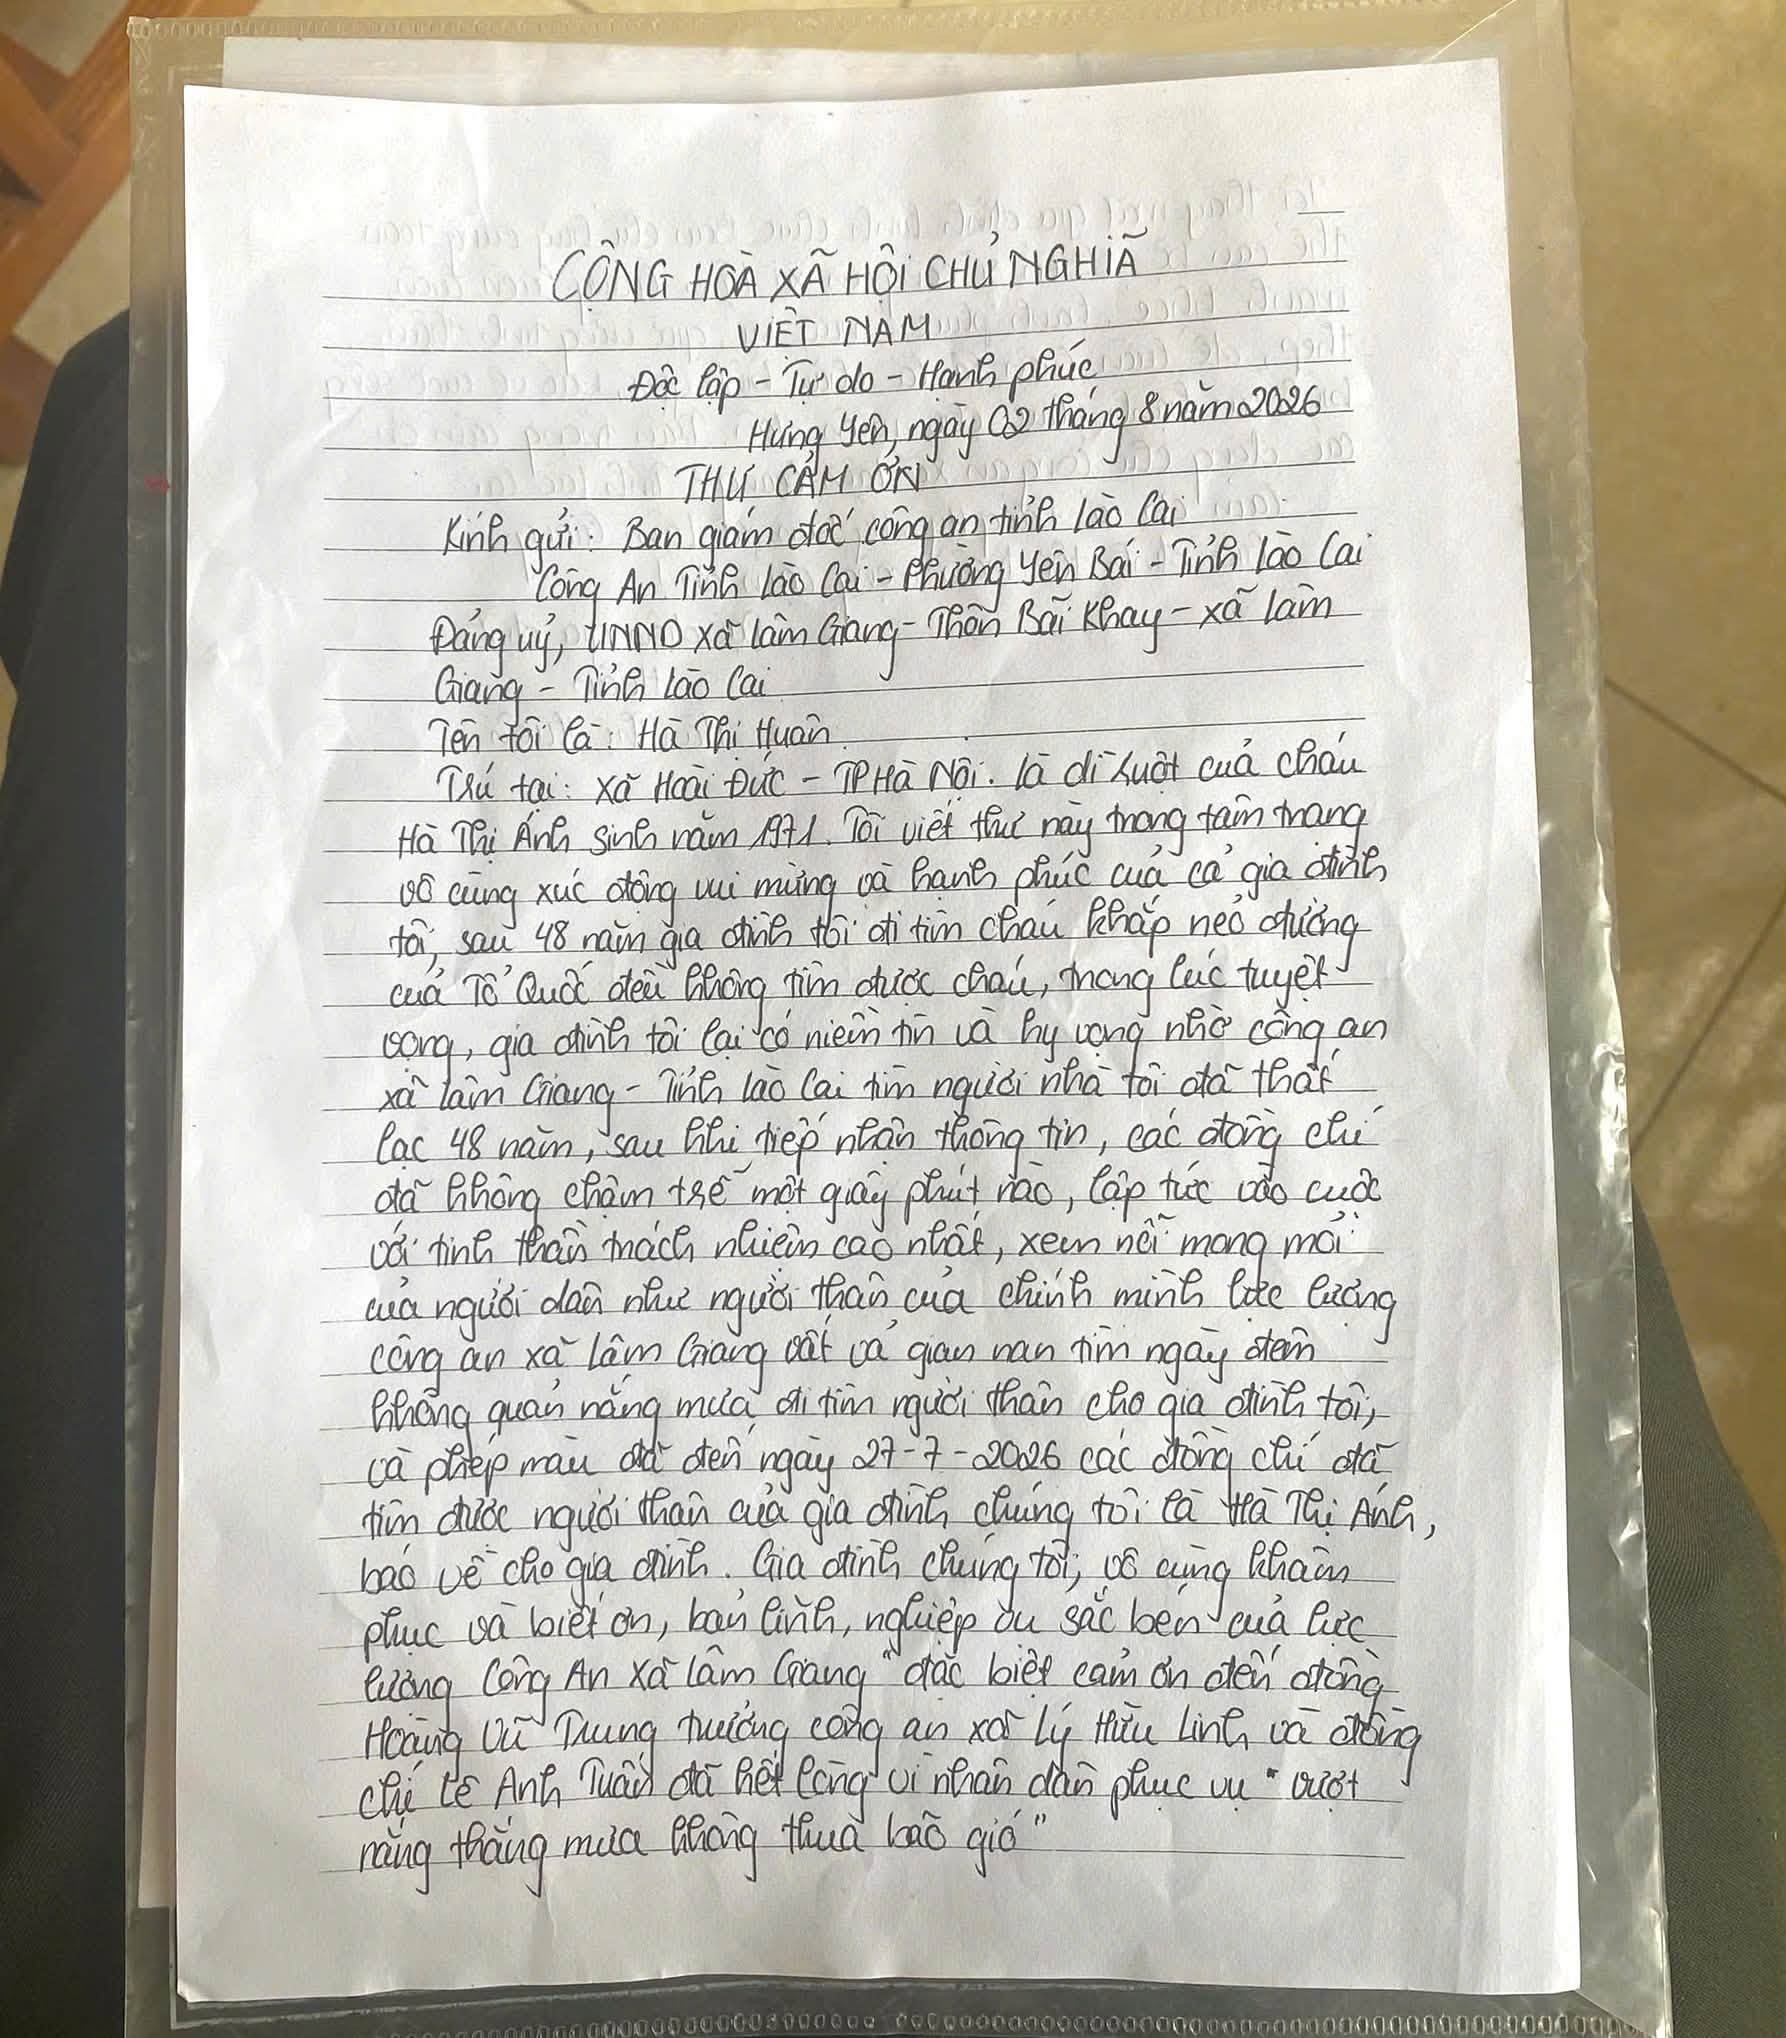 CỘNG HOÀ XÃ HỘI CHỦ NGHĨA
VIỆT NAM
Độc lập - Tự do - Hạnh phúc
Hưng Yên, ngày 02 tháng 8 năm 2026
THƯ CẢM ƠN
Kính gửi: Ban giám đốc công an tỉnh Lào Cai
Công An Tỉnh Lào Cai - Phường Yên Bái - Tỉnh Lào Cai
Đảng uỷ, UNND xã Lâm Giang - Thôn Bãi Khay - xã Lâm
Giang - Tỉnh Lào Cai
Tên tôi là: Hà Thị Huân
Trú tại: xã Hoài Đức - TP Hà Nội. là dì ruột của cháu
Hà Thị Ánh sinh năm 1971. Tôi viết thư này trong tâm trang
vô cùng xúc động vui mừng và hạnh phúc của cả gia đình
tôi, sau 48 năm gia đình tôi đi tìm cháu khắp nẻo đường
của Tổ Quốc đều không tìm được cháu, trong lúc tuyệt
vọng, gia đình tôi lại có niềm tin và hy vọng nhờ công an
xã Lâm Giang - Tỉnh Lào Cai tìm người nhà tôi đã thất
lạc 48 năm, sau khi tiếp nhận thông tin, các đồng chí
đã không chậm trễ một giây phút nào, lập tức vào cuộc
với tinh thần trách nhiệm cao nhất, xem nỗi mong mỏi
của người dân như người thân của chính mình lực lượng
công an xã Lâm Giang vất vả gian nan tìm ngày đêm
không quản nắng mưa đi tìm người thân cho gia đình tôi,
và phép màu đã đến ngày 27-7-2026 các đồng chí đã
tìm được người thân của gia đình chúng tôi là Hà Thị Ánh,
báo về cho gia đình. Gia đình chúng tôi, vô cùng khâm
phục và biết ơn, bản lĩnh, nghiệp vụ sắc bén của lực
lượng Công An xã Lâm Giang" đặc biệt cảm ơn đến đồng
Hoàng Vũ Trung trưởng công an xã Lý Hữu Linh và đồng
chí Lê Anh Tuấn đã hết lòng vì nhân dân phục vụ " vượt
nắng thắng mưa không thua bão gió"